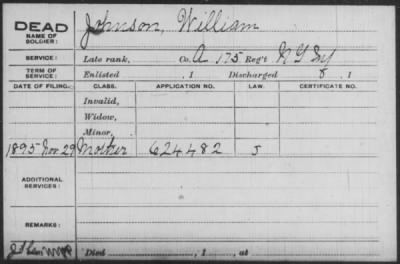 DEAD Johnson, William
NAME OF
SOLDIER:
SERVICE: Late rank, Co. A 175 Reg't N Y Inf
TERM OF
SERVICE: Enlisted , 1 Discharged , 1
DATE OF FILING. CLASS. APPLICATION NO. LAW. CERTIFICATE NO.
Invalid,
Widow,
Minor,
1895 Nov 29 Mother 624482
ADDITIONAL
SERVICES:
REMARKS:
Died , 1 , at